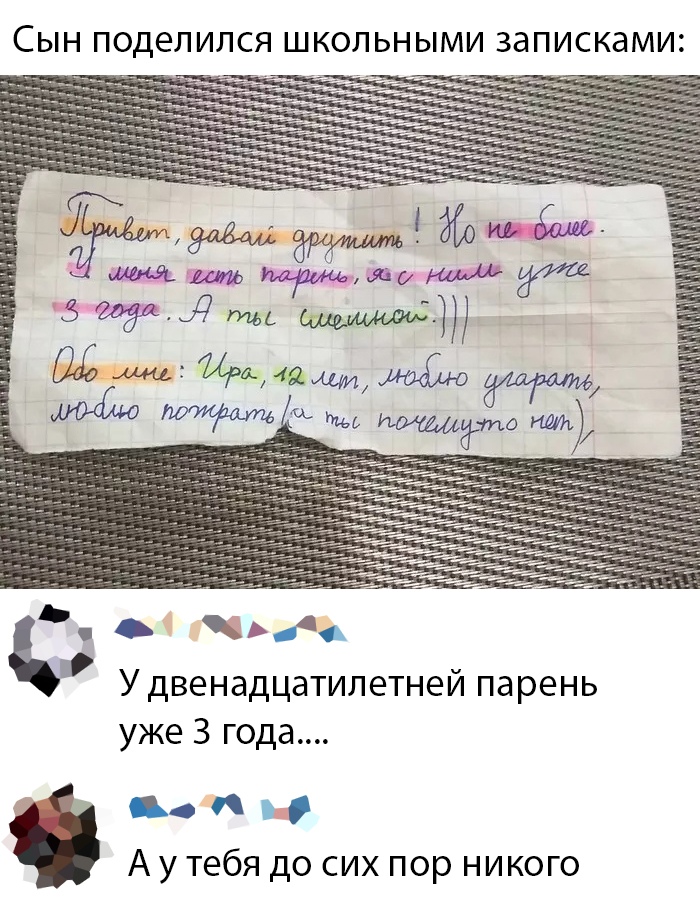 Сын поделился школьными записками:
Привет, давай дружить! Но не более.
У меня есть парень, я с ним уже
3 года. А ты смешной:)))
Обо мне: Ира, 12 лет, люблю угарать,
люблю пожрать (а ты почему-то нет),
У двенадцатилетней парень
уже 3 года....
А у тебя до сих пор никого